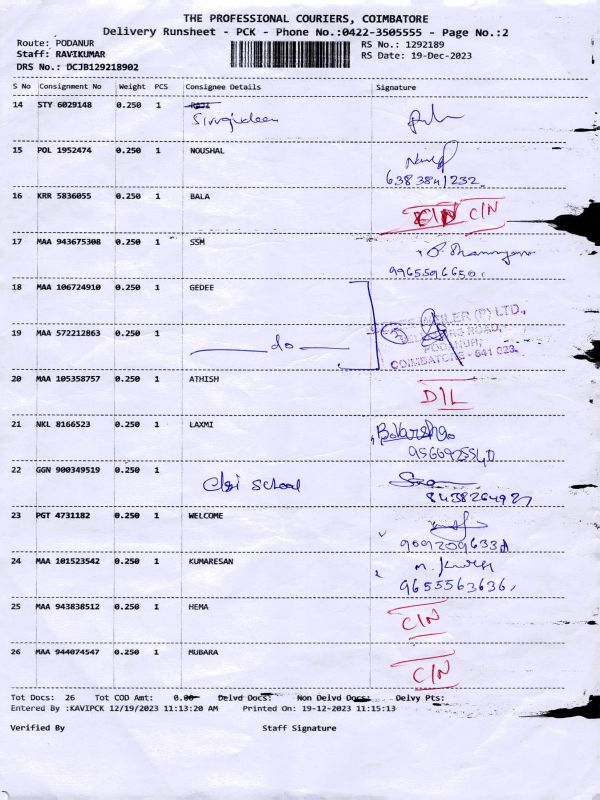 THE PROFESSIONAL COURIERS, COIMBATORE
Delivery Runsheet - PCK - Phone No.:0422-3505555 - Page No.:2
Route: PODANUR
RS No.: 1292189
Staff: RAVIKUMAR
RS Date: 19-Dec-2023
DRS No.: DCJB129218902
S No Consignment No Weight PCS Consignee Details Signature
14 STY 6029148 0.250 1
15 POL 1952474 0.250 1 NOUSHAL
6383841232
16 KRR 5836055 0.250 1 BALA C/N C/N
17 MAA 943675308 0.250 1 SSM
9965596650
18 MAA 106724910 0.250 1 GEDEE
(P) LTD.,
ROAD,
19 MAA 572212863 0.250 1 do
PODANUR,
COIMBATORE - 641 023.
20 MAA 105358757 0.250 1 ATHISH D/L
21 NKL 8166523 0.250 1 LAXMI
22 GGN 900349519 0.250 1 School
23 PGT 4731182 0.250 1 WELCOME
24 MAA 101523542 0.250 1 KUMARESAN
9655563636
25 MAA 943838512 0.250 1 HEMA C/N
26 MAA 944074547 0.250 1 MUBARA C/N
Tot Docs: 26 Tot COD Amt: 0.00 Delvd Docs: Non Delvd Docs: Delvy Pts:
Entered By :KAVIPCK 12/19/2023 11:13:20 AM Printed On: 19-12-2023 11:15:13
Verified By Staff Signature